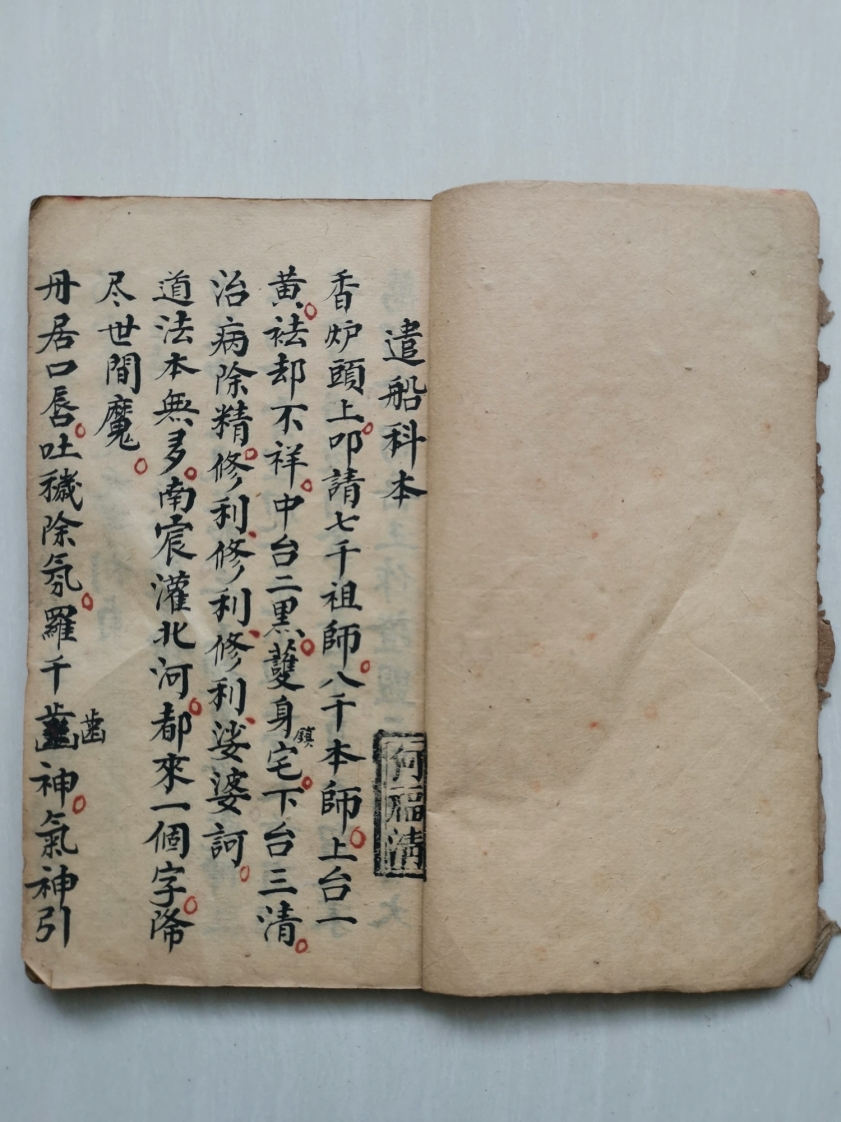 遣船科本
何福清
香炉頭上叩請七千祖師八千本師上台一
黄祛却不祥中台二黑護身鎮宅下台三清
治病除精修利修利修利娑婆訶
道法本無多南宸灌北河都來一個字降
尽世間魔
丹居口唇吐穢除氛羅千齒神氣神引